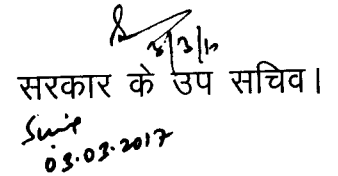 3/3/17
सरकार के उप सचिव।
03.03.2017